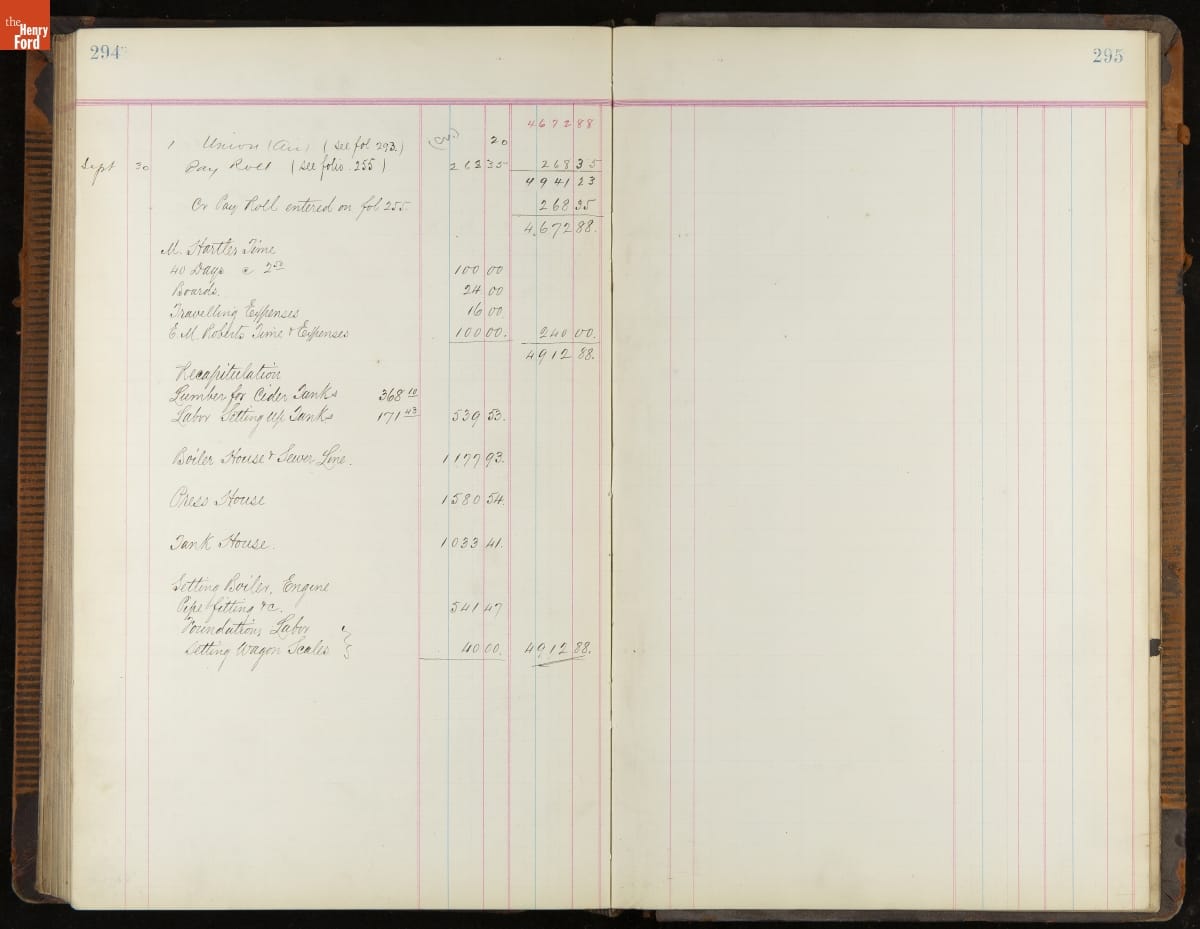 the Henry Ford
294
295
4672 88
1 Union (see fol 293.) (Cr) 20
Sept 30 Pay Roll (see folio 255) 263 35 268 35
4941 23
Cr Pay Roll entered on fol 255. 268 35
4,672 88.
M. Hartles Time
40 Days @ 2 50 100 00
Boards. 24 00
Travelling Expenses 16 00
E. M. Roberts Time & Expenses 100 00. 240 00.
4912 88.
Recapitulation
Lumber for Cider Tanks 368 10
Labor Setting up Tanks 171 43 539 53.
Boiler House & Sewer Line. 1177 93.
Press House 1580 54.
Tank House. 1033 41.
Setting Boiler, Engine
Pipe fitting &c. 541 47
Foundations Labor
Setting Wagon Scales 40 00. 4912 88.